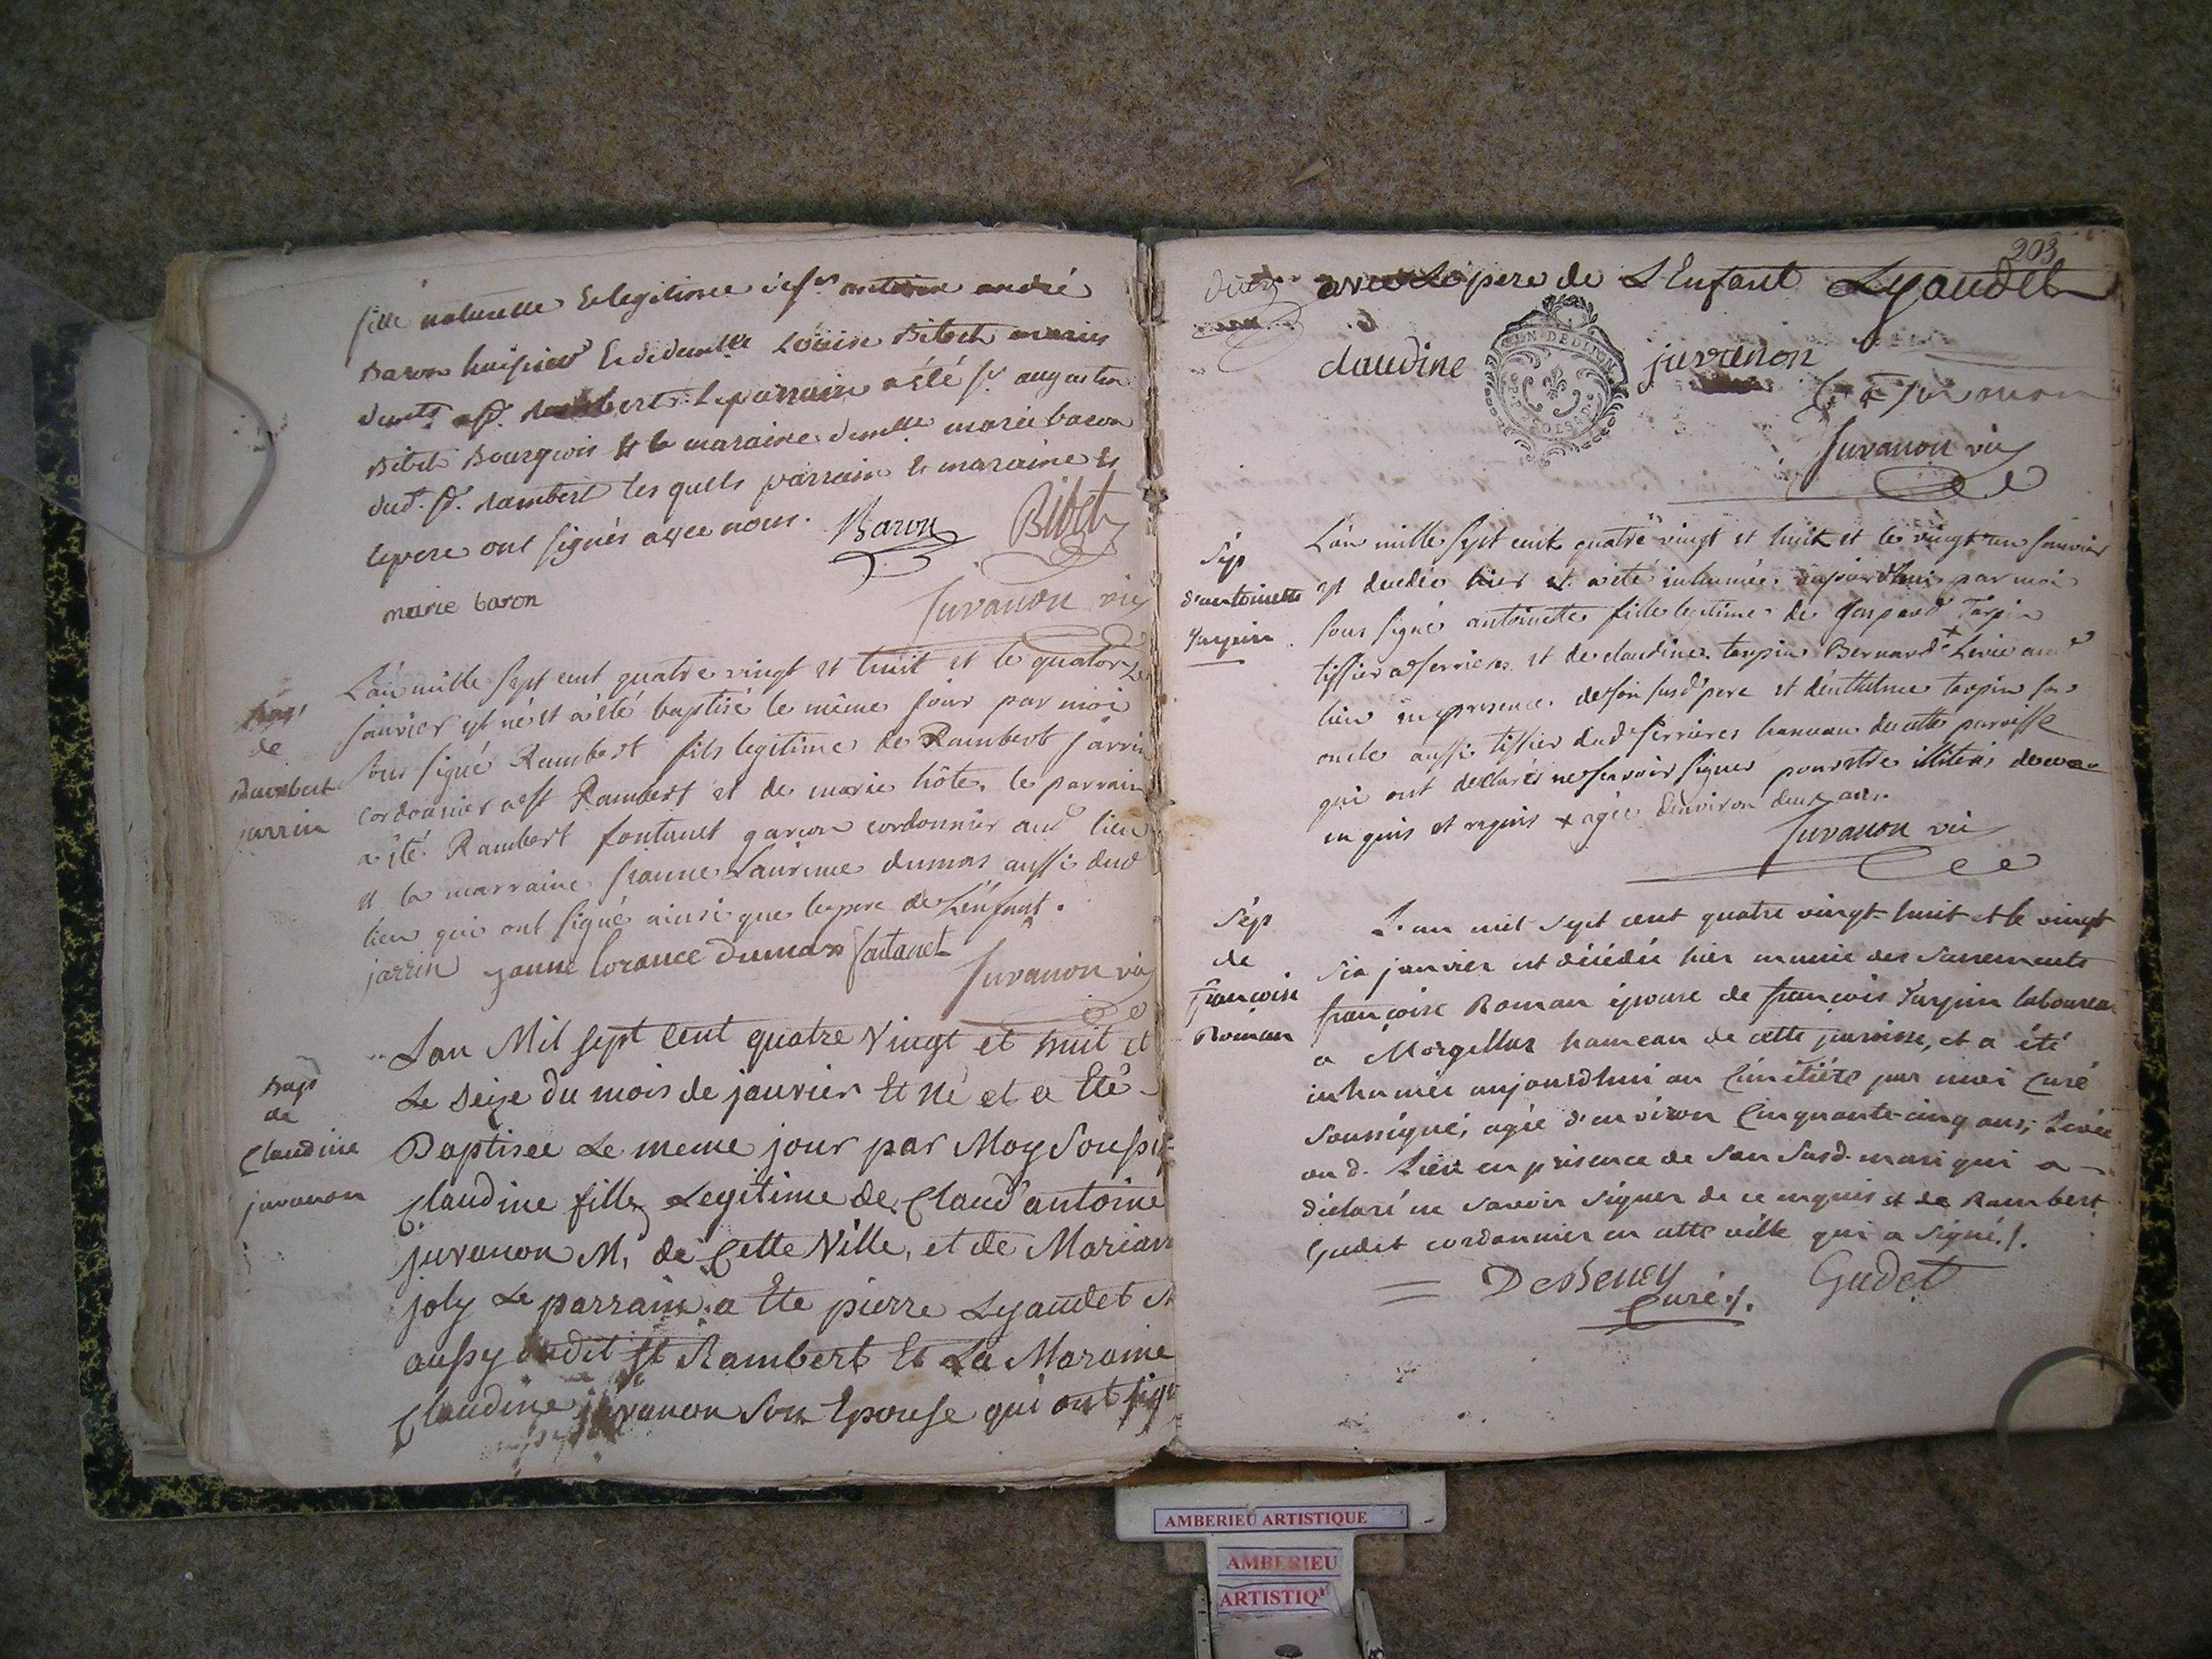 fille naturelle et legitime de sr antoine andré
Baron huissier et de demlle Louise Bibet mariés
dud. st. Rambert. le parrain a été sr augustin
Bibet Bourgeois et la maraine demlle marie baron
dud. st. Rambert lesquels parrain et maraine et
le pere ont signés avec nous. Baron Bibet
marie baron Juvanon vic
L'an mille sept cent quatre vingt et huit et le quatorze
janvier est né et a été baptisé le même jour par moi
sous signé Rambert fils legitime de Rambert jarrin
cordonnier a st Rambert et de marie hôte, le parrain
a été Rambert fontanet garçon cordonnier aud lieu
et la marraine jeanne Laurence dumas aussi dud
lieu qui ont signé ainsi que le pere de l'enfant.
jarrin janne lorance dumas fontanet
Juvanon vic
de
Rambert
jarrin
Lan Mil sept Cent quatre Vingt et huit et
Le seize du mois de janvier Et né et a Eté
Baptisee Le meme jour par Moy Soussi
Claudine fille Legitime de Claud antoine
juvanon M. de Cette Ville, et de Mariann
joly Le parrain a Ete pierre Lyaudet
aussy dudit st Rambert Et La Maraine
Claudine juvanon Son Epouse qui ont sign
Bap
de
Claudine
juvanon
203
avec Le pere de L'Enfant Lyaudet
claudine juvanon
Juvanon vic
Sép
d'antoinette
Tarpin
L'an mille sept cent quatre vingt et huit et le vingt un janvier
est decedée hier et a été inhumée aujourd'hui par moi
sous signé antoinette fille legitime de gaspard Tarpin
tissier a serrieres et de claudine tarpin Bernard x Levée aud
lieu en presence de son susd pere et d'enthelme tarpin son
oncle aussi tissier dud serrieres hameau de cette paroisse
qui ont declarés ne scavoir signer pour être illiterés de ce
enquis et requis x agée d'environ deux ans.
Juvanon vic
Sép
de
Françoise
Roman
L'an mil sept cent quatre vingt-huit et le vingt
six janvier est décédée hier munie des sacrements
françoise Roman épouse de françois Tarpin laboureur
a Morgellas hameau de cette paroisse, et a été
inhumée aujourdhui au Cimétière par moi Curé
soussigné, agée d'environ Cinquante-cinq ans, Levée
aud. Lieu en présence de son susd. mari qui a
déclaré ne savoir signer de ce enquis et de Rambert
Gudet cordonnier en cette ville qui a signé./.
DeBeney Gudet
Curé./.
AMBERIEU ARTISTIQUE
AMBERIEU
ARTISTIQ